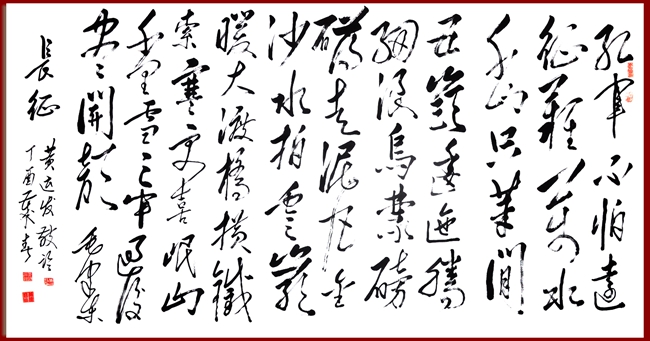 紅軍不怕遠
征難萬水
千山只等閒
五嶺逶迤騰
細浪烏蒙磅
礴走泥丸金
沙水拍雲崖
暖大渡橋橫鐵
索寒更喜岷山
千里雪三軍過後
尽開顏 毛澤東
長征
黄远发敬
丁酉 春